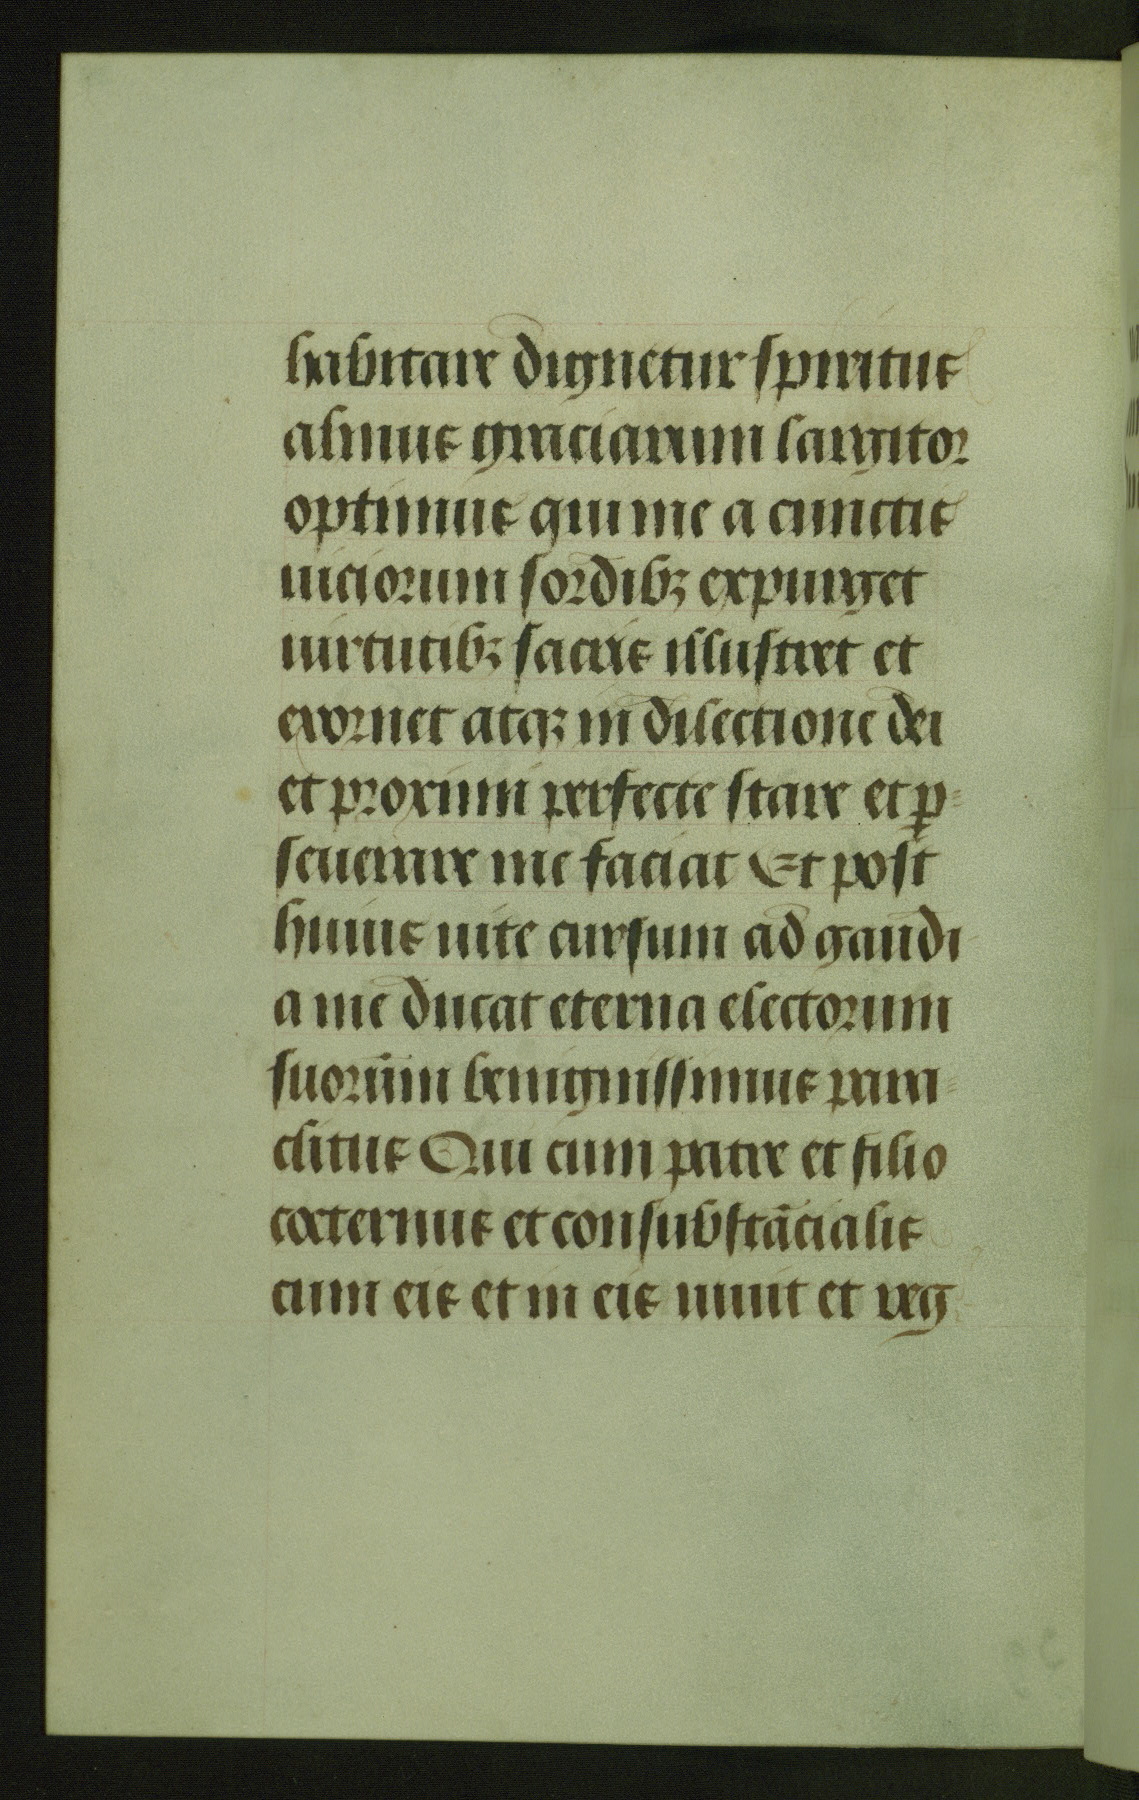 habitare dignetur spiritus
almus graciarum largitor
optimus qui me a cunctis
uiciorum sordibꝫ expurget
uirtutibꝫ sacris illustret et
exornet atqꝫ in dilectione dei
et proximi perfecte stare et ꝑ=
seuerare me faciat Et post
huius uite cursum ad gaudi
a me ducat eterna electorum
suorum benignissimus para=
clitus Qui cum patre et filio
coeternus et consubstācialis
cum eis et in eis uiuit et reg